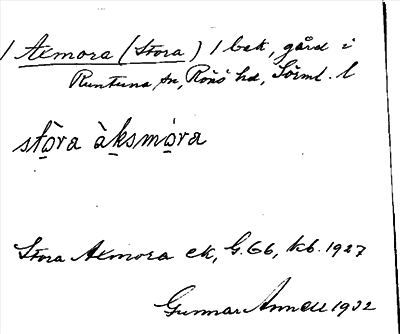 / Axmora (Stora) / bek, gård i
Runtuna sn, Rönö hd, Sörml. l
stọ̀ra àksmọ́ra
Stora Axmora ek, G. 66, kb. 1927
Gunnar Annell 1932